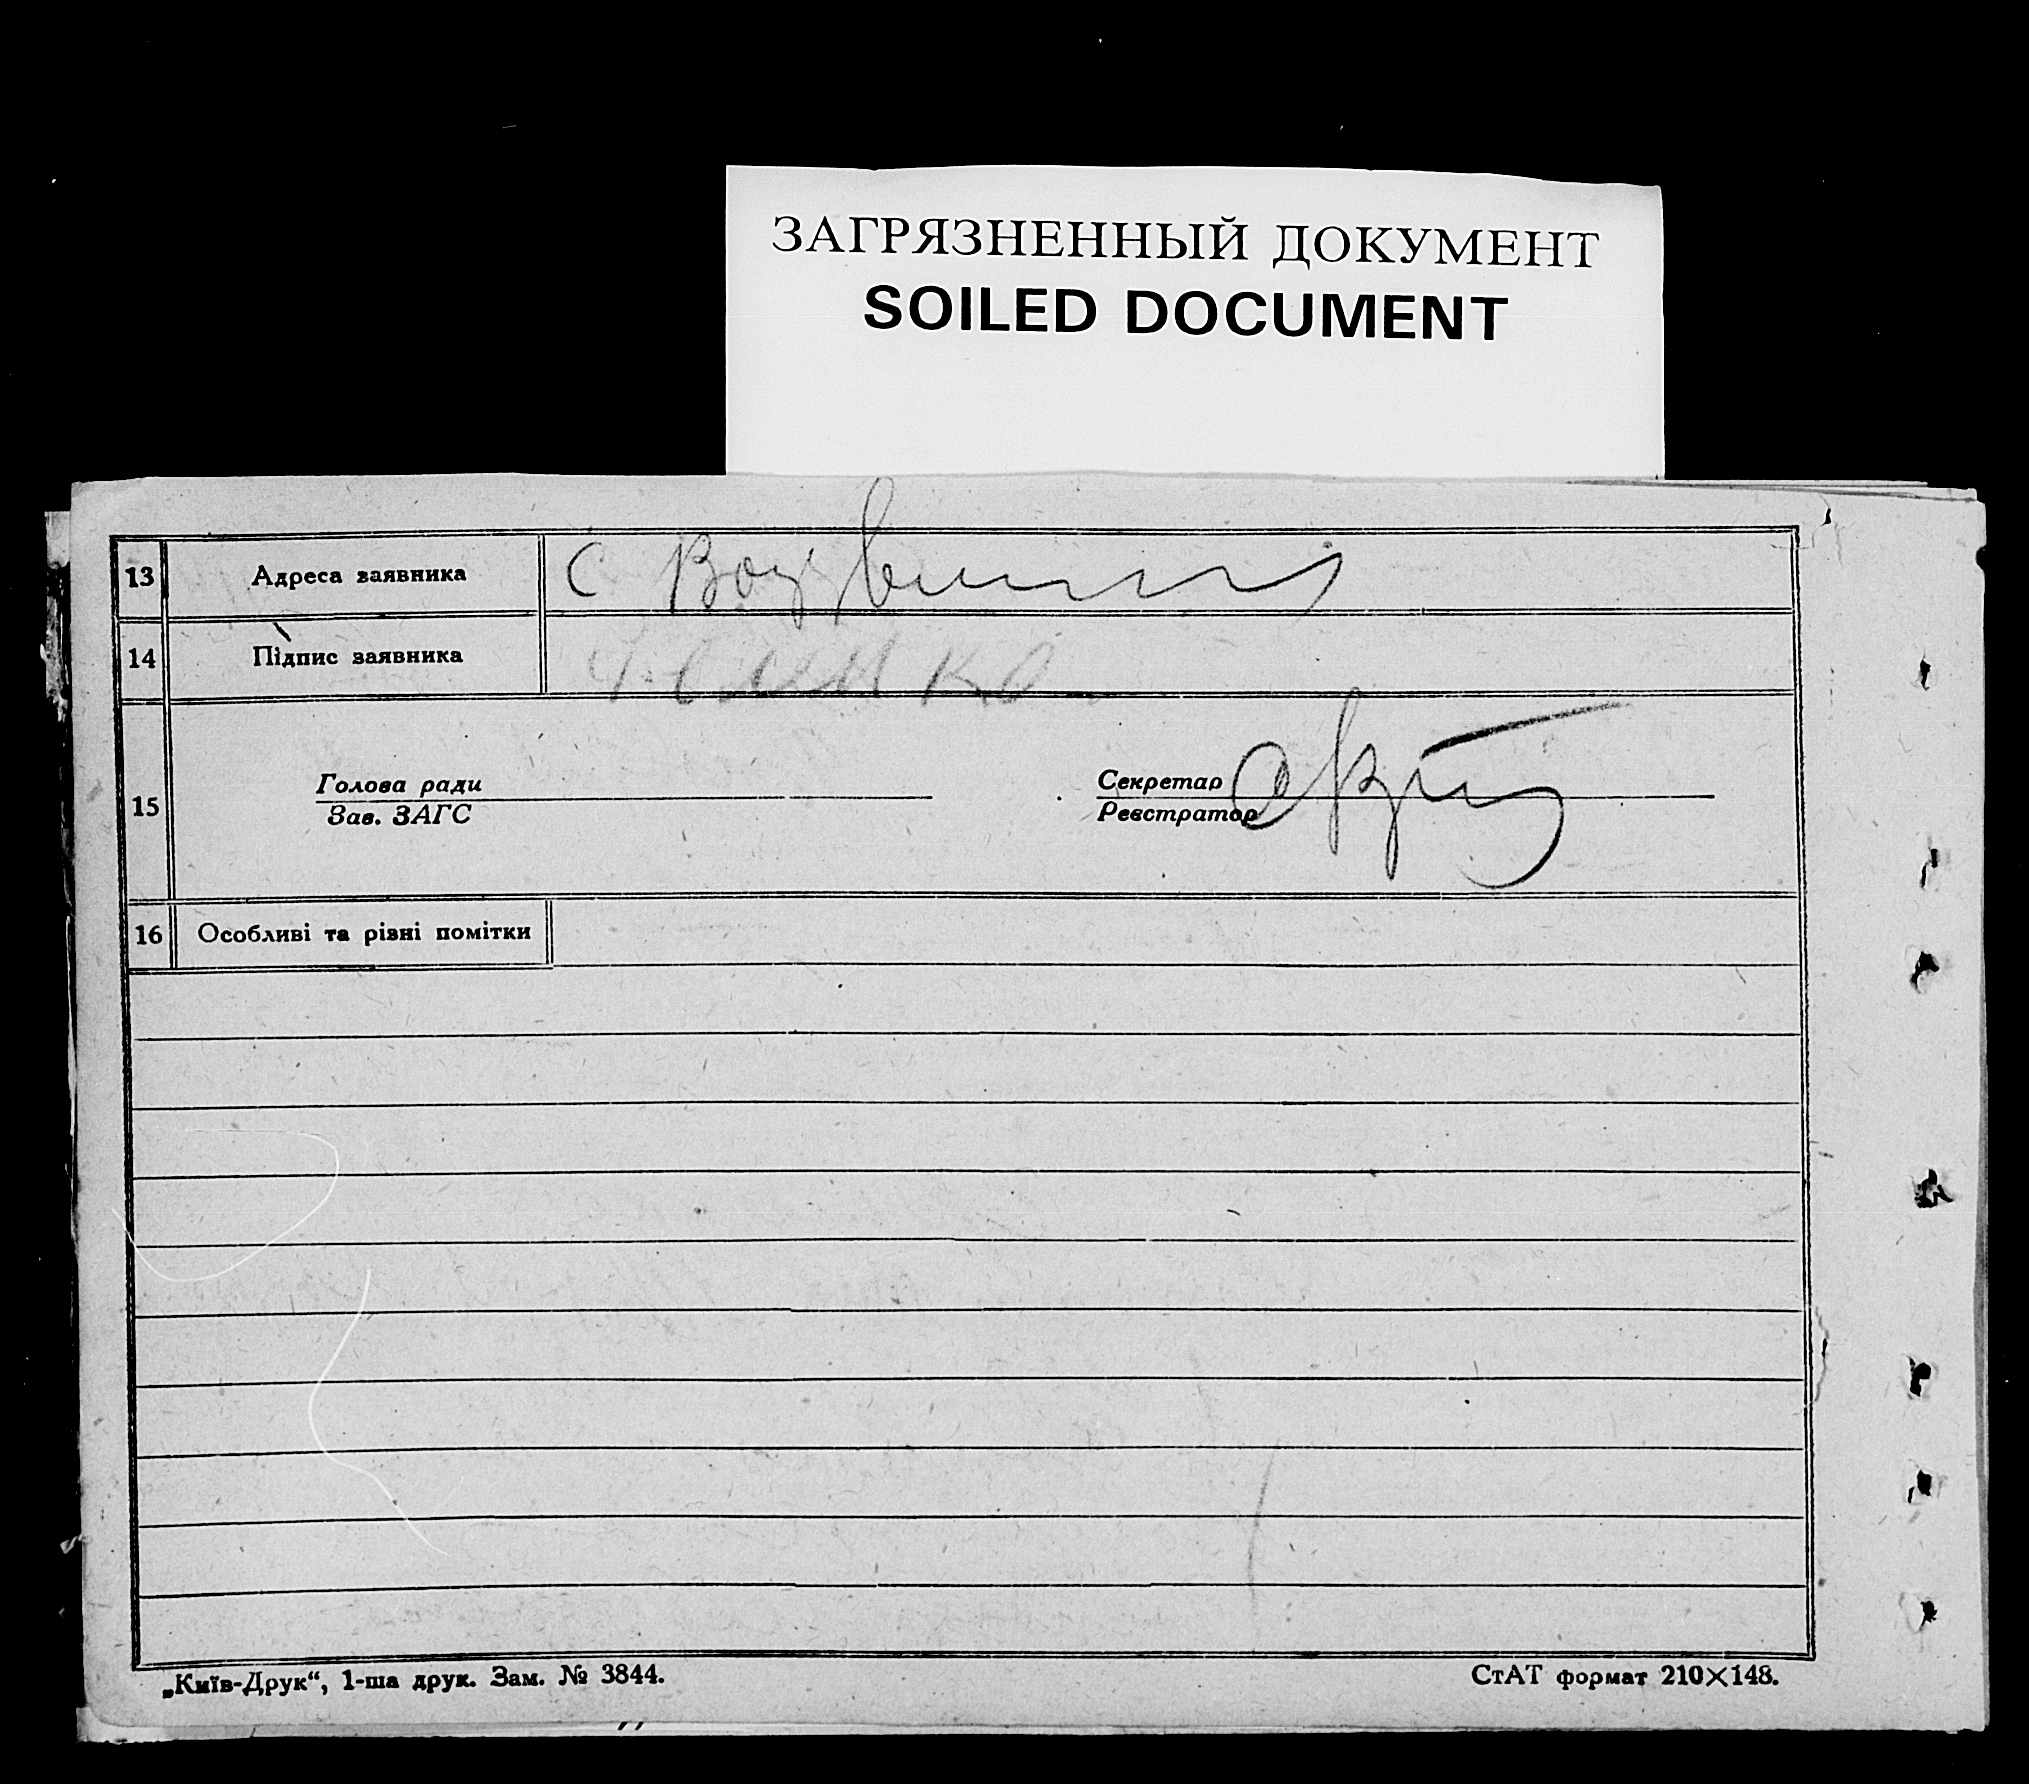 ЗАГРЯЗНЕННЫЙ ДОКУМЕНТ
SOILED DOCUMENT
13 Адреса заявника с
14 Підпис заявника
15 Голова ради Секретар
Зав. ЗАГС Реєстратор
16 Особливі та різні помітки
„Київ-Друк“, 1-ша друк. Зам. № 3844. СтАТ формат 210×148.